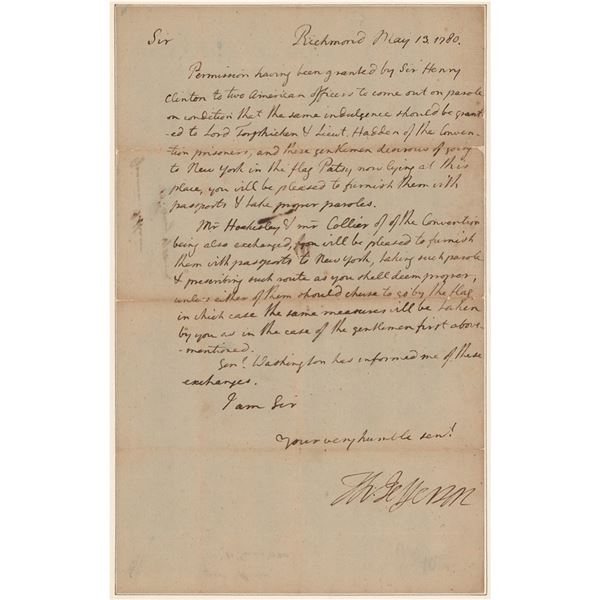 Sir Richmond May 13. 1780.
Permission having been granted by Sir Henry
Clinton to two American officers to come out on parole
on condition that the same indulgence should be grant-
ed to Lord Torphichen & Lieut. Hadden of the Conven-
tion prisoners, and these gentlemen desirous of going
to New York in the flag Patsy now lying at this
place, you will be pleased to furnish them with
passports & take proper paroles.
Mr & mr Collier of of the Convention
being also exchanged, you will be pleased to furnish
them with passports to New York, taking such parole
& prescribing such route as you shall deem proper,
unless either of them should chuse to go by the flag
in which case the same measures will be taken
by you as in the case of the gentlemen first above-
-mentioned.
Genl. Washington has informed me of these
exchanges.
I am Sir
Your very humble servt.
Th: Jefferson